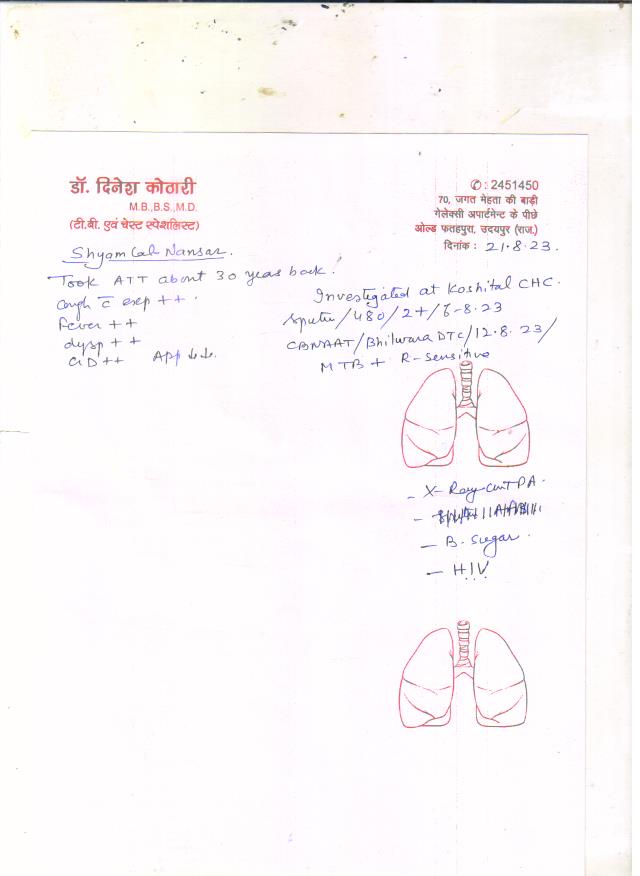 डॉ. दिनेश कोठारी
M.B.,B.S.,M.D.
(टी.बी. एवं चेस्ट स्पेशलिस्ट)
✆ : 2451450
70, जगत मेहता की बाड़ी
गेलेक्सी अपार्टमेन्ट के पीछे
ओल्ड फतहपुरा, उदयपुर (राज.)
दिनांक : 21.8.23.
Shyam Lal
Took ATT about 30 years back.
Cough c̄ exep ++
Fever ++
dysp ++
GD ++ App ↓↓.
Investigated at Koshital CHC.
Sputu/480/2+/6-8.23
CBNAAT/Bhilwara DTC/12.8.23/
MTB + R-Sensitive
- X-Ray Chest PA.
- B. Sugar.
- HIV